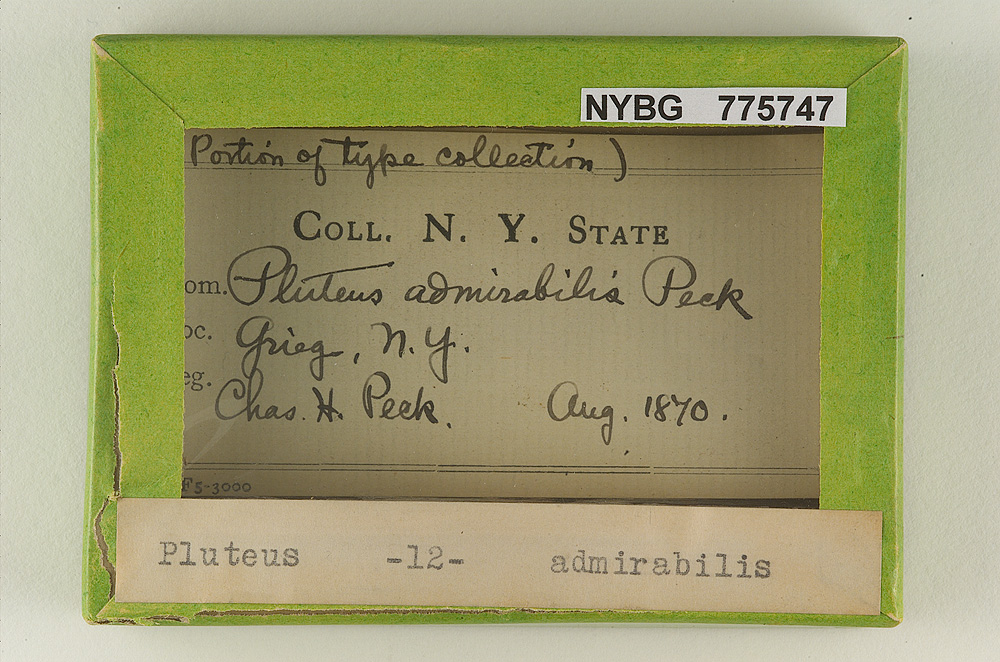 NYBG 775747
Portion of type collection)
COLL. N. Y. STATE
om. Pluteus admirabilis Peck
oc. Grieg, N.Y.
eg. Chas. H. Peck. Aug. 1870.
F5-3000
Pluteus -12- admirabilis